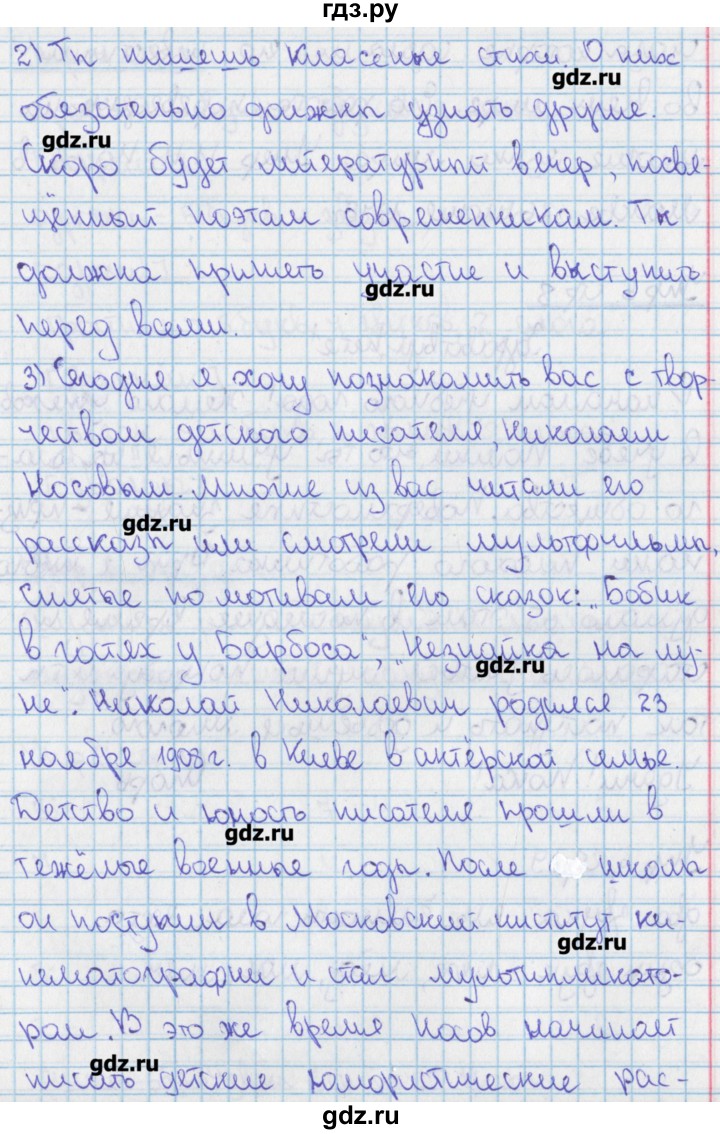 гдз.ру
2) Ты пишешь классные стихи. О них
gdz.ru
обязательно должны узнать другие.
gdz.ru
Скоро будет литературный вечер, посвя-
щённый поэтам современникам. Ты
должна принять участие и выступить
gdz.ru
перед всеми.
3) Сегодня я хочу познакомить вас с твор-
чеством детского писателя, Николаем
Носовым. Многие из вас читали его
gdz.ru
рассказы или смотрели мультфильмы,
снятые по мотивам его сказок: „Бобик
в гостях у Барбоса“, „Незнайка на лу-
gdz.ru
не“. Николай Николаевич родился 23
ноября 1908 г. в Киеве в актёрской семье.
Детство и юность писателя прошли в
gdz.ru
тяжёлые военные годы. После школы
он поступил в Московский институт ки-
gdz.ru
нематографии и стал мультипликато-
ром. В это же время Носов начинает
gdz.ru
писать детские юмористические рас-
gdz.ru